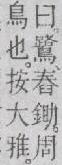 曰鷺、舂鋤。周
鳥也。按大雅。